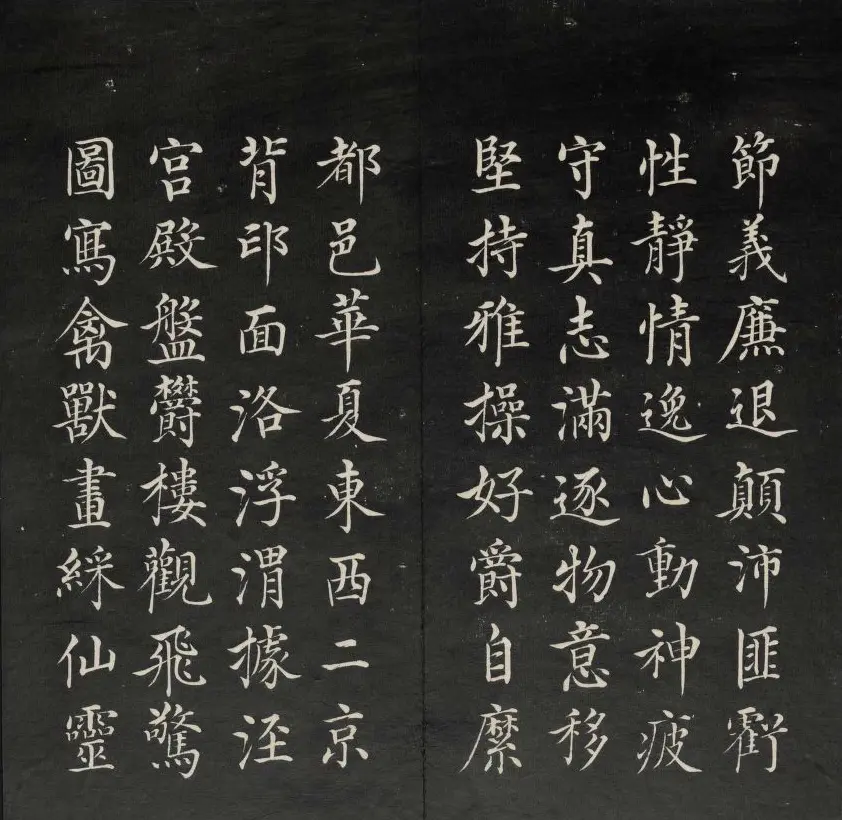 節義廉退顛沛匪虧
性靜情逸心動神疲
守真志滿逐物意移
堅持雅操好爵自縻
都邑華夏東西二京
背邙面洛浮渭據涇
宮殿盤鬱樓觀飛驚
圖寫禽獸畫綵仙靈